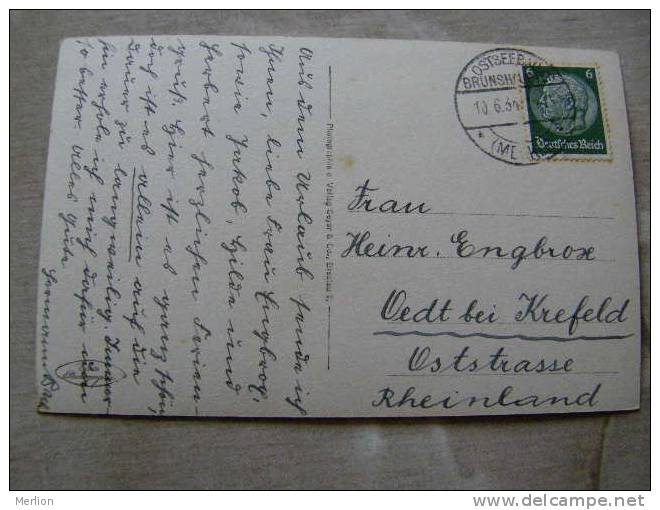 Aus dem Urlaub sende ich
Ihnen, liebe Frau Engbrox,
sowie Jakob, Hilde und
Herbert herzlichen Ferien-
gruß. Hier ist es ganz schön,
doch ist es allein auf die
Dauer zu langweilig. Immer-
hin erhole ich mich dafür um
so besser. Alles Gute
Photographie u. Verlag Geyer & Co., Breslau
OSTSEEBAD
BRUNSHAUPTEN
10.6.34
(ME
6 6
Deutsches Reich
Frau
Heinr. Engbrox
Oedt bei Krefeld
Oststrasse
Rheinland
Merlion
www.delcampe.net